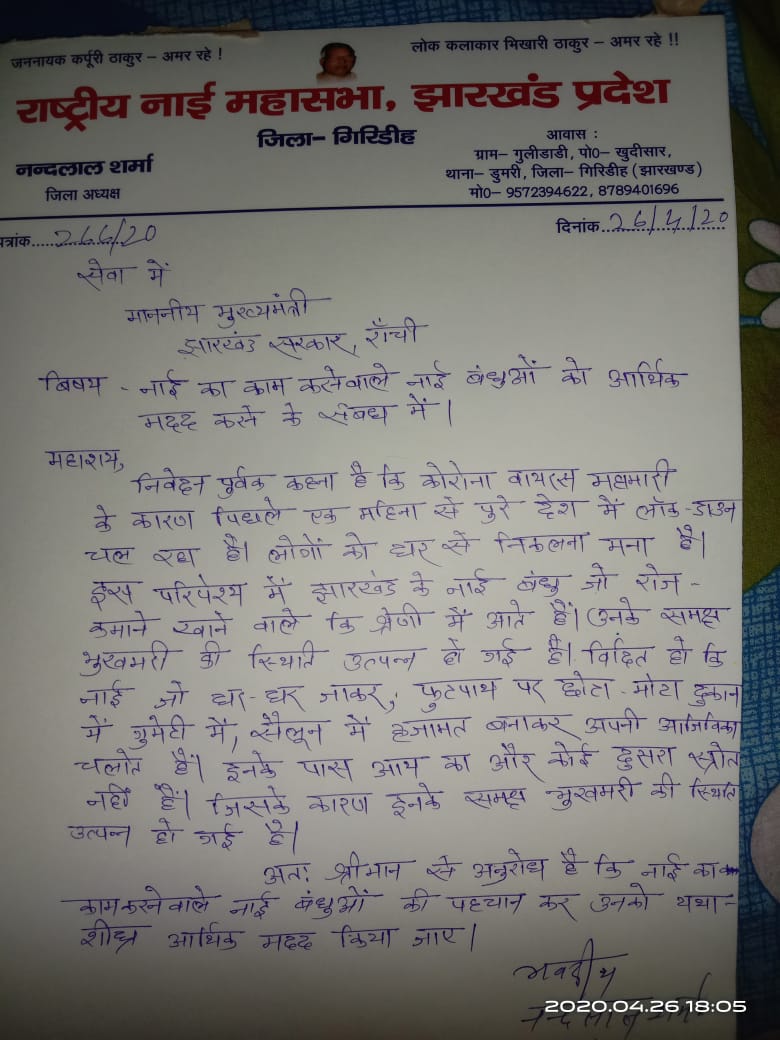 जननायक कर्पूरी ठाकुर – अमर रहे !
लोक कलाकार भिखारी ठाकुर – अमर रहे !!
राष्ट्रीय नाई महासभा, झारखंड प्रदेश
जिला– गिरिडीह
नन्दलाल शर्मा
जिला अध्यक्ष
आवास :
ग्राम– गुलीडाडी, पो0– खुदीसार,
थाना– डुमरी, जिला– गिरिडीह (झारखण्ड)
मो0– 9572394622, 8789401696
त्रांक..... 266/20
दिनांक.. 26/4/20
सेवा में
माननीय मुख्यमंत्री
झारखंड सरकार, राँची
बिषय - नाई का काम करनेवाले नाई बंधुओं को आर्थिक
मदद करने के संबंध में।
महाशय,
निवेदन पूर्वक कहना है कि कोरोना वायरस महामारी
के कारण पिछले एक महिना से पुरे देश में लॉक-डाउन
चल रहा है। लोगों को घर से निकलना मना है।
इस परिपेश्य में झारखंड के नाई बंधु जो रोज-
कमाने खाने वाले कि श्रेणी में आते हैं। उनके समक्ष
भुखमरी की स्थिति उत्पन्न हो गई है। विदित हो कि
नाई जो घर-घर जाकर, फुटपाथ पर छोटा-मोटा दुकान
में गुमटी में, सैलून में हजामत बनाकर अपनी आजिविका
चलाते हैं। इनके पास आय का और कोई दुसरा स्त्रोत
नहीं है। जिसके कारण इनके समक्ष भुखमरी की स्थिति
उत्पन्न हो गई है।
अतः श्रीमान से अनुरोध है कि नाई का
काम करनेवाले नाई बंधुओं की पहचान कर उनको यथा-
शीघ्र आर्थिक मदद किया जाए।
भवदीय
नन्दलाल शर्मा
2020.04.26 18:05